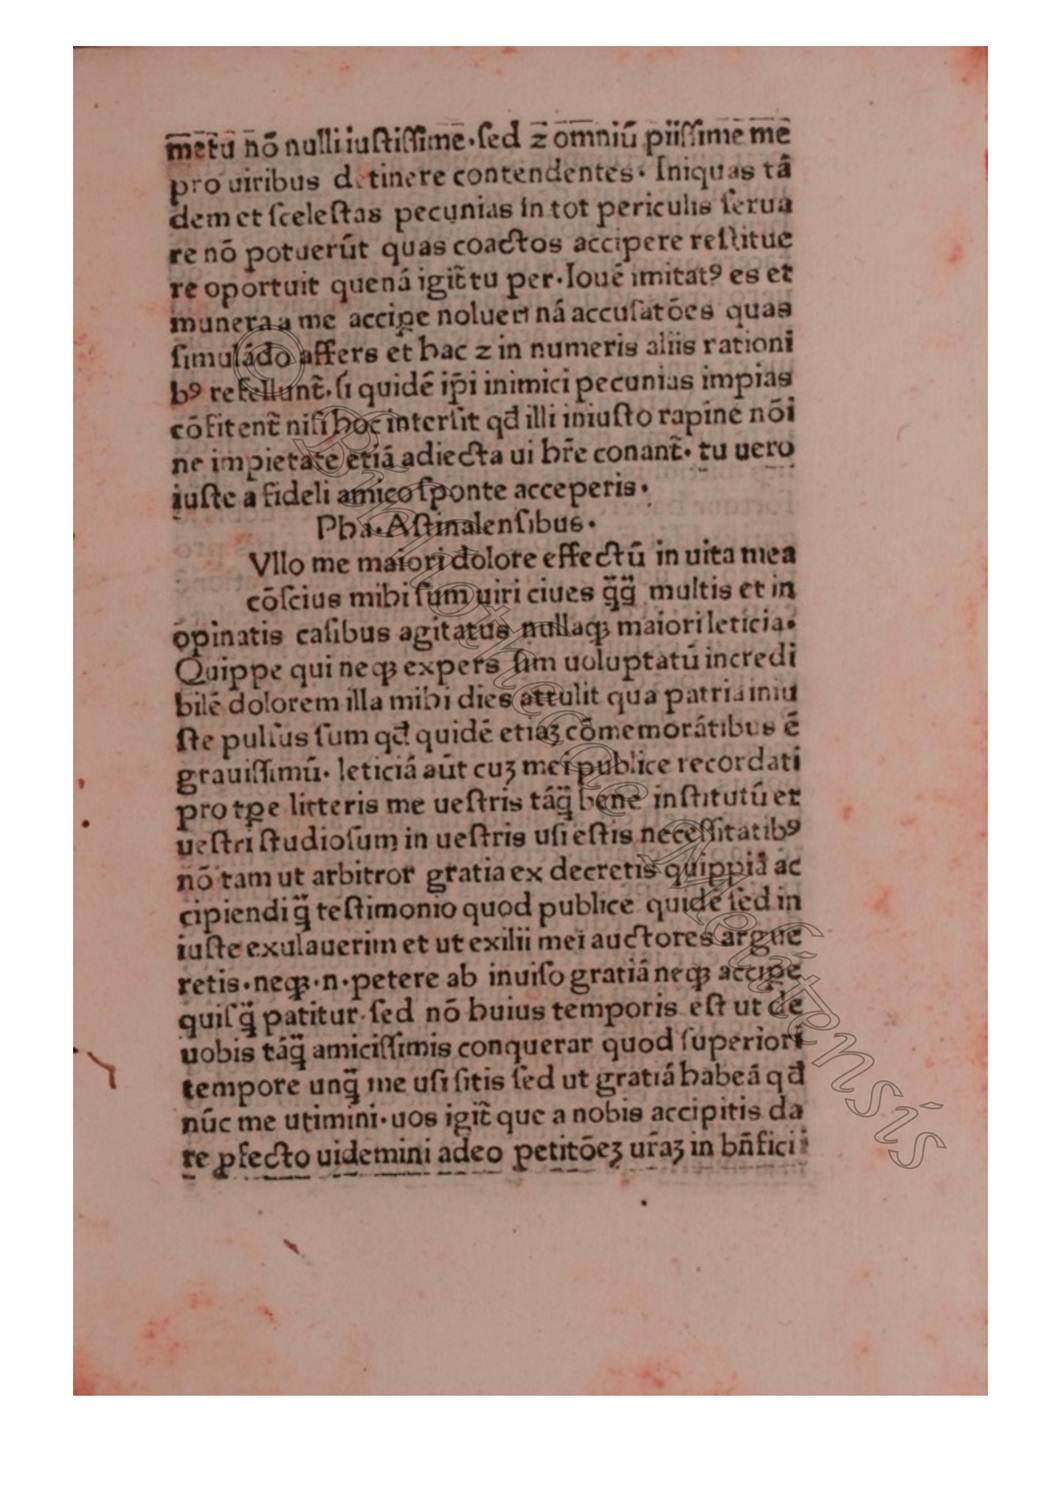 metū nō nulli iuſtiſſime·ſed ⁊ omniū piiſſime mē
pro uiribus detinere contendentes· Iniquas tā
dem et ſceleſtas pecunias in tot periculis ſerua
re nō potuerūt quas coactos accipere reſtitue
re oportuit quenā igit̄ tu per·Iouē imitatꝰ es et
munera a me accipe nolueri nā accuſatōes quas
ſimulādo affers et hac ⁊ in numeris aliis rationi
bꝰ refellunt̄·ſi quidē ip̄i inimici pecunias impias
cōfitent̄ niſi hoc interſit qđ illi iniuſto rapine nōi
ne impietate etiā adiecta ui hr̄e conant̄· tu uero
iuſte a fideli amico ſponte acceperis·
Pha·Aſtinalenſibus·
Vllo me maiori dolore effectū in uita mea
cōſcius mihi ſum uiri ciues q̄q̄ multis et in
opinatis caſibus agitatus nullaqꝫ maiori leticia·
Quippe qui neqꝫ expers ſim uoluptatū incredi
bilē dolorem illa mihi dies attulit qua patria iniu
ſte pulſus ſum qđ quidē etiaꝫ cōmemorātibus ē
grauiſſimū· leticiā aūt cuꝫ mei publice recordati
pro tꝑe litteris me ueſtris tāq̄ bene inſtitutū et
ueſtri ſtudioſum in ueſtris uſi eſtis neceſſitatibꝰ
nō tam ut arbitror gratia ex decretis quippiā ac
cipiendi q̄ teſtimonio quod publice quidē ſed in
iuſte exulauerim et ut exilii mei auctores argue
retis·neqꝫ·n·petere ab inuiſo gratiā neqꝫ accipe
quiſq̄ patitur·ſed nō huius temporis eſt ut de
uobis tāq̄ amiciſſimis conquerar quod ſuperiori
tempore unq̄ me uſi ſitis ſed ut gratiā habeā qđ
nūc me utimini·uos igit̄ que a nobis accipitis da
re ꝓfecto uidemini adeo petitōeꝫ ur̄aꝫ in bn̄fici
© Bibliotheca Melitensis